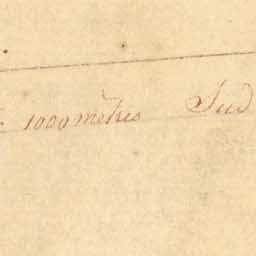 1000 mètres Sud